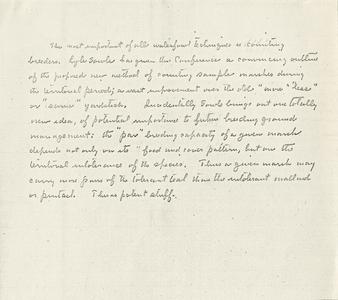 The most important of all waterfowl techniques is counting
breeders. Lyle Sowls has given the Conference a convincing outline
of the proposed new method of counting sample marshes during
the territorial period; a vast improvement over the old "more" "less"
or "same" yardstick. Incidentally Sowls brings out one totally
new idea, of potential importance to future breeding ground
management: the "par" breeding capacity of a given marsh
depends not only on its food and cover pattern, but on the
territorial intolerances of the species. Thus a given marsh may
carry more pairs of the tolerant teal than the intolerant mallard
or pintail. This is potent stuff.